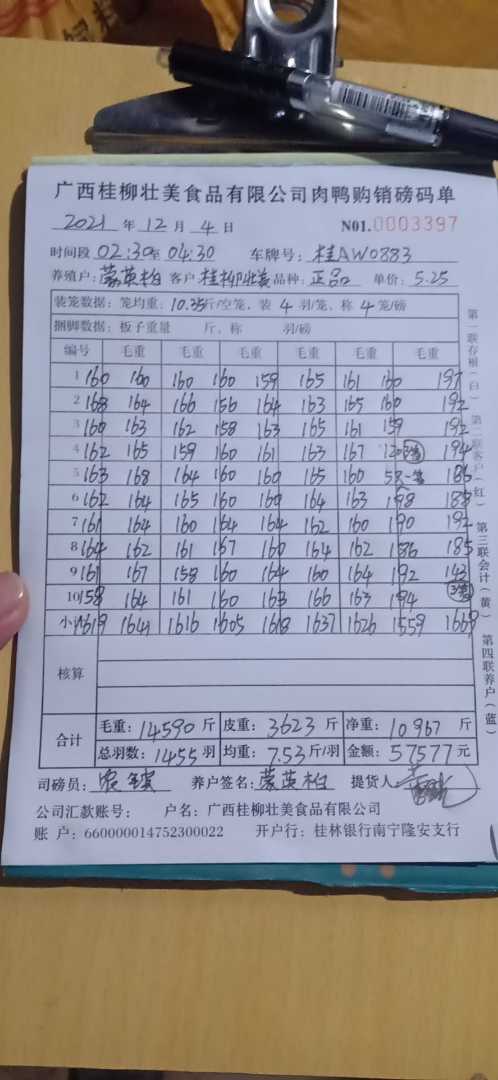 广西桂柳壮美食品有限公司肉鸭购销磅码单
2021 年 12 月 4 日 N01.0003397
时间段 02:30至 04:30 车牌号：桂AW0883
养殖户：蒙英柏 客户 桂柳壮美 品种：正品 单价：5.25
装笼数据：笼均重：10.35斤/空笼，装 4 羽/笼，称 4 笼/磅
捆脚数据：板子重量 斤，称 羽/磅
编号 毛重 毛重 毛重 毛重 毛重
1 160 160 160 160 159 165 161 160 197
2 168 164 166 156 164 163 165 160 192
3 160 163 162 158 163 165 161 159 192
4 162 165 159 160 161 163 167 194
5 163 168 164 160 160 165 160 186
6 162 164 165 160 160 164 163 198 188
7 161 164 160 164 164 162 160 190 192
8 164 162 161 167 160 164 162 186 185
9 161 167 158 160 164 160 164 192 143
10 158 164 161 160 163 166 163 194
小计 1619 1641 1616 1605 1618 1637 1626 1559 1669
核算
合计 毛重：14590 斤 皮重：3623 斤 净重：10967 斤
总羽数：1455 羽 均重：7.53斤/羽 金额：57577 元
司磅员： 养户签名：蒙英柏 提货人
公司汇款账号： 户名：广西桂柳壮美食品有限公司
账 户：660000014752300022 开户行：桂林银行南宁隆安支行
第一联存根（白） 第二联客户（红） 第三联会计（黄） 第四联养户（蓝）